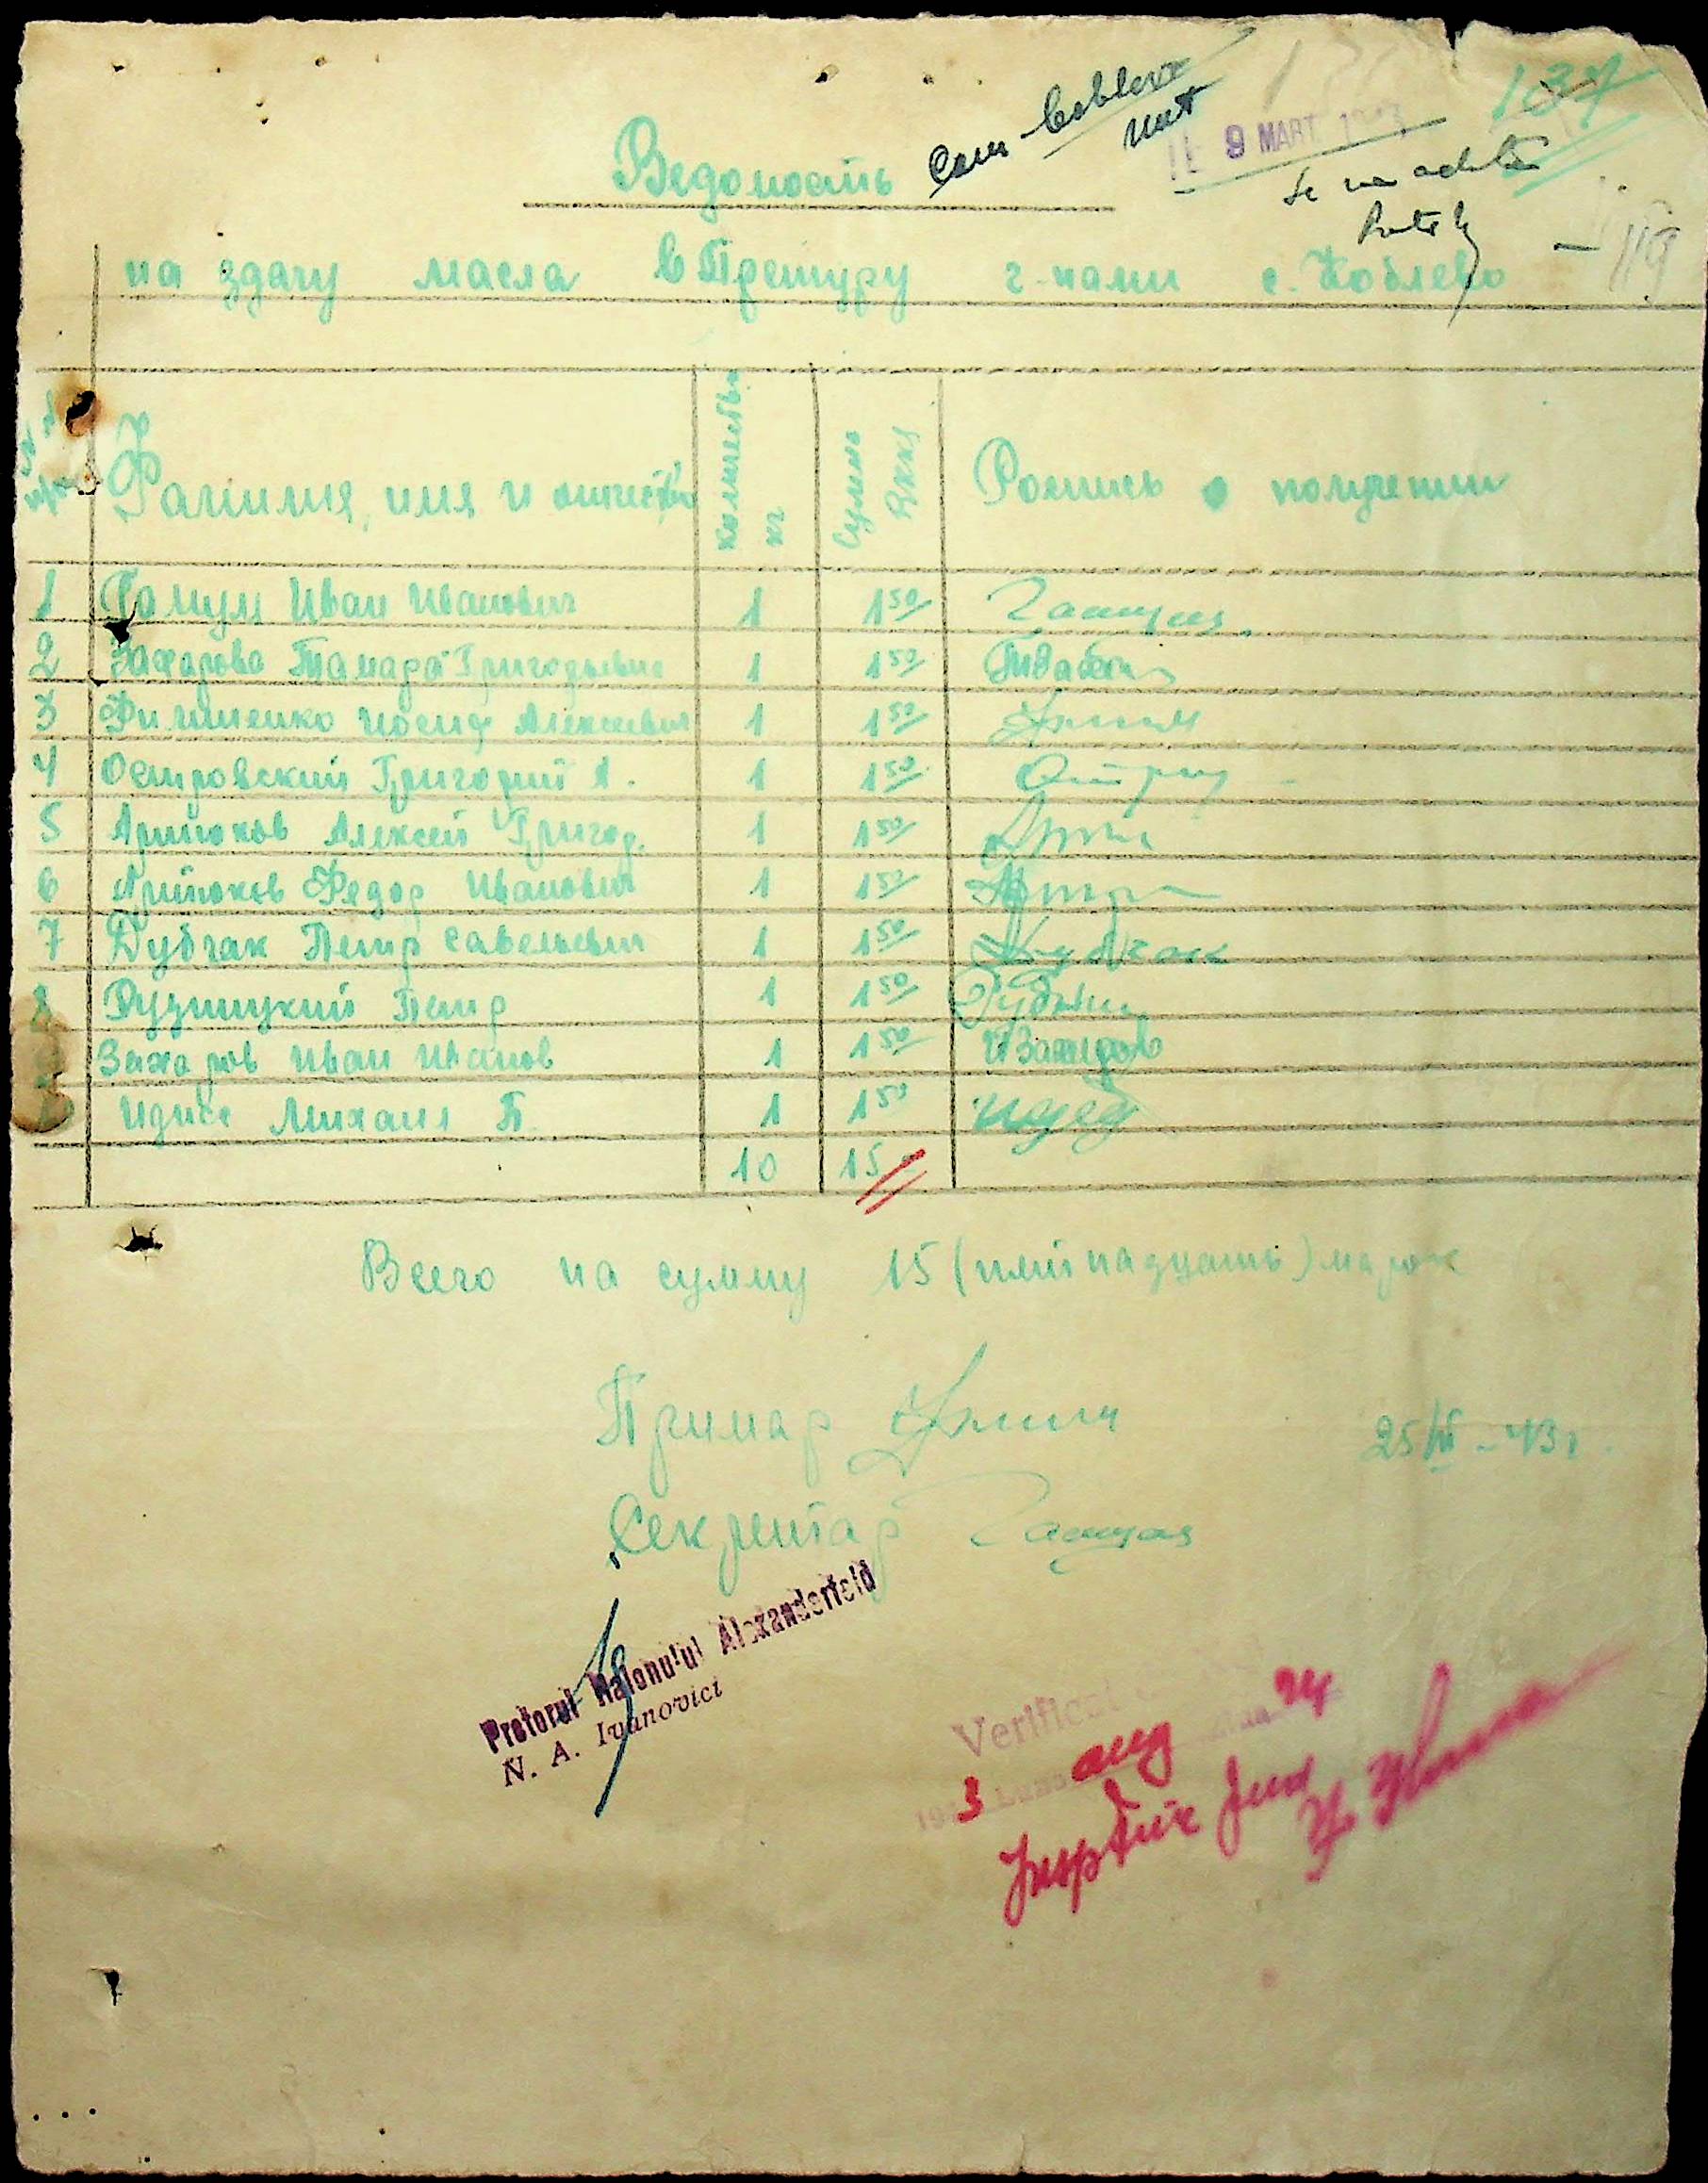 137
Com. Coblevo
unt
9 МАРТ. 1943
Se va achita
119
Ведомость
на здачу масла в Претуру г-нами с. Коблево
Фамилия, имя и отчество | количество кг | Сумма RKKS | Роспись о получении
1 Гамум Иван Иванович 1 1 50
2 Захарова Тамара Григорьевна 1 1 50
3 Филипенко Иосиф Алексеевич 1 1 50
4 Островский Григорий А. 1 1 50 Остр
5 Арнтоков Алексей Григор. 1 1 50
6 Арнтоков Федор Иванович 1 1 50
7 Дубчак Петр Савельевич 1 1 50 Дубчак
8 Рудницкий Петр 1 1 50
9 Захаров Иван Иванов 1 1 50 ИЗахаров
Идисе Михаил П. 1 1 50
10 15
Всего на сумму 15 (пятнадцать) марок
Примар
25/III-43 г.
Секретар
Pretorul Raionului Alexanderfeld
N. A. Ivanovici
Verificat
24
1943 Luna aug
Inspector Jud